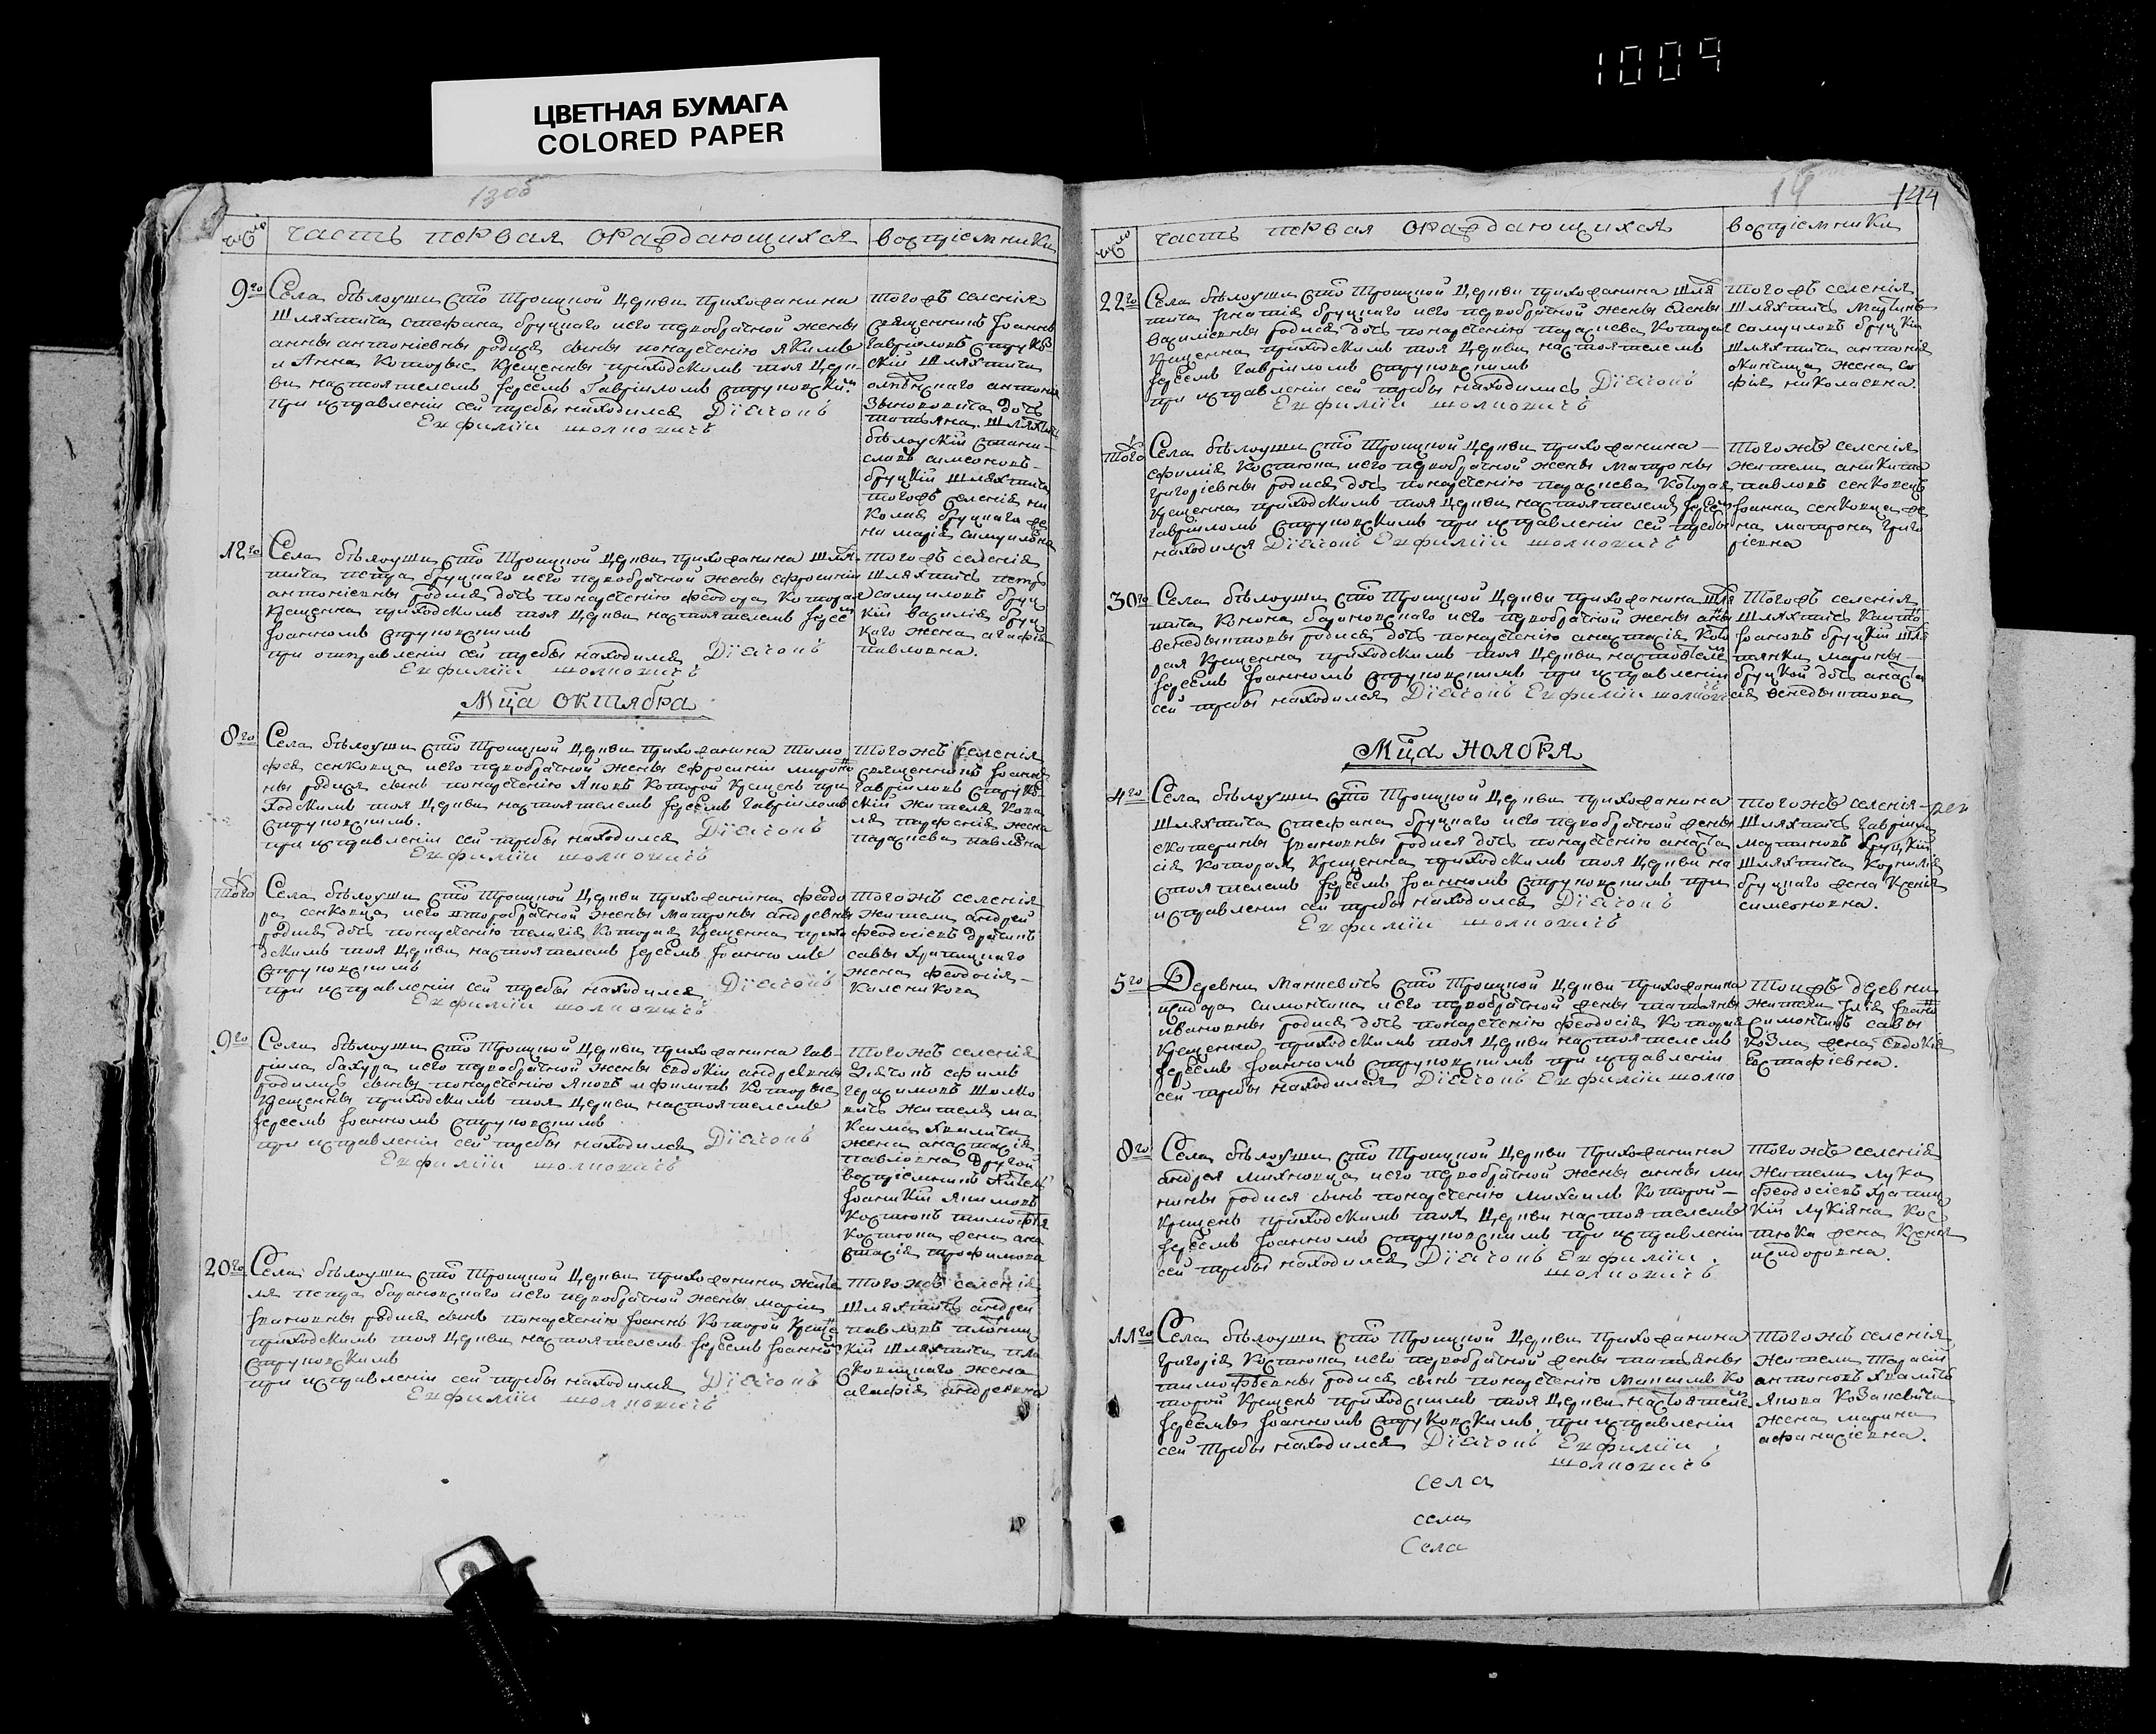 1009
ЦВЕТНАЯ БУМАГА
COLORED PAPER
13об
число
часть первая ораждающихся
воспріемники
9го
Села бѣлоуши сто Троицкой Церкви прихожанина
шляхтича стефана бруцкаго иего первобрачной жены
анны антоніевны родися сынъ понаречению якимъ
и Анна Которые Крещенны приходскимъ тоя Церк-
ви настоятелемъ Іереемъ Гавріиломъ струковскимъ
при исправленіи сей требы находился Діаконъ
Евфимій шолковичъ
тогожъ селенія
священникъ Іоаннъ
Гавріиловъ струков
скій шляхтича
антона
дочь
татьяна. шляхтич
бѣлоускій стани-
славъ симеоновъ
бруцкій шляхтича
тогожъ селенія ни
колая бруцкаго же
на марія самуилова
12го
Села бѣлоуши сто Троицкой Церкви прихожанина шлях
тича петра бруцкаго иего первобрачной жены ефросиніи
антоніевны родися дочь понаречению феодора Которая
Крещенна приходскимъ тоя Церкви настоятелемъ Іерее
Іоанномъ струковскимъ
при отправленіи сей требы находился Діаконъ
Евфимій шолковичъ
тогожъ селенія
шляхтичъ петръ
самуиловъ бруц
кій василія бруц
каго жена агафія
павловна.
Мца октября
8го
Села бѣлоуши сто Троицкой Церкви прихожанина тимо
фея сенковца иего первобрачной жены ефросиніи мироно
ны родися сынъ понаречению Яковъ Которой Крещенъ при
ходскимъ тоя Церкви настоятелемъ Іереемъ Гавріиломъ
струковскимъ.
при исправленіи сей требы находился Діаконъ
Евфимій шолковичъ
Тогожъ селенія
священникъ Іоаннъ
Гавріиловъ струков
скій жителя Кова
ля парфенія жена
параскева павловна
того
Села бѣлоуши сто Троицкой Церкви прихожанина феодо
ра сенковца иего второбрачной жены матроны андревны
родися дочь понаречению пелагія Которая Крещенна прихо
дскимъ тоя Церкви настоятелемъ Іереемъ Іоанномъ
струковскимъ
при исправленіи сей требы находился Діаконъ
Евфимій шолковичъ
Тогожъ селенія
житель андрей
феодосіевъ
савы храпицкаго
жена феодосія
9го
Села бѣлоуши сто Троицкой Церкви прихожанина гав-
ріила бахура иего первобрачной жены евдокіи андревны
родились сыны понаречению Яковъ ифилипъ Которые
Крещенны приходскимъ тоя Церкви настоятелемъ
Іереемъ Іоанномъ струковскимъ
при исправленіи сей требы находился Діаконъ
Евфимій шолковичъ
Тогожъ селенія
Діаконъ ефимъ
герасимовъ шолко
вичъ жителя ма
ксима хвалича
жена анастасія
павловна другой
воспріемникъ житель
Іоаникій якимовъ
Костюкъ тимофея
Костюка жена ана
стасія трофимова
20го
Села бѣлоуши сто Троицкой Церкви прихожанина жите
ля петра барановскаго иего первобрачной жены маріи
Ивановны родися сынъ понаречению Іоаннъ Которой Креще
приходскимъ тоя Церкви настоятелемъ Іереемъ Іоанно
струковскимъ
при исправленіи сей требы находился Діаконъ
Евфимій шолковичъ
Тогожъ селенія
шляхтичъ андрей
павловъ плотниц
кій шляхтича
жена
агафія андревна
14
144
число
часть первая ораждающихся
воспріемники
22го
Села бѣлоуши сто Троицкой Церкви прихожанина шлях
тича Игнатія бруцкаго иего первобрачной жены елены
василиевны родися дочь понаречению параскева Которая
Крещенна приходскимъ тоя Церкви настоятелемъ
Іереемъ Гавріиломъ струковскимъ
при исправленіи сей требы находились Діаконъ
Евфимій шолковичъ
тогожъ селенія
шляхтичъ Мартинъ
самуиловъ бруцкій
шляхтича антонія
жена со
фія николаевна.
того
Села бѣлоуши сто Троицкой Церкви прихожанина
ефимія Костюка иего первобрачной жены Матроны
григоріевны родися дочь понаречению параскева Которая
Крещенна приходскимъ тоя Церкви настоятелемъ Іерее
Гавріиломъ струковскимъ при исправленіи сей требы
находился Діаконъ Евфимій шолковичъ
Тогожъ селенія
житель аникита
павловъ сенковецъ
Іоанна сенковца же
на матрона григо
ріевна
30го
Села бѣлоуши сто Троицкой Церкви прихожанина шлях
тича Конона барановскаго иего первобрачной жены анны
венедыктовы родися дочь понаречению анастасія Кото
рая Крещенна приходскимъ тоя Церкви настоятеле
Іереемъ Іоанномъ струковскимъ при исправленіи
сей требы находился Діаконъ Евфимій шолковичъ
Тогожъ селенія
шляхтичъ
Іоановъ бруцкій шлях
тянки марины
бруцкой дочь анаста
сія венедыктова
Мца Ноября
4го
Села бѣлоуши сто Троицкой Церкви прихожанина
шляхтича стефана бруцкаго иего первобрачной жены
екатерины Ивановны родися дочь понаречению анаста
сія Которая Крещенна приходскимъ тоя Церкви на
стоятелемъ Іереемъ Іоанномъ струковскимъ при
исправленіи сей требы находился Діаконъ
Евфимій шолковичъ
Тогожъ селенія
шляхтичъ Гавріилъ
мартиновъ бруцкій
шляхтича Корнилія
бруцкаго жена Ксенія
симеоновна.
5го
Деревни Манкевичъ сто Троицкой Церкви прихожанина
исидора симончича иего первобрачной жены татіяны
ивановны родися дочь понаречению феодосія Которая
Крещенна приходскимъ тоя Церкви настоятелемъ
Іереемъ Іоанномъ струковскимъ при исправленіи
сей требы находился Діаконъ Евфимій шолко
Тоижъ деревни
житель Илія Ивано
симончичъ савы
Козла жена Евдокія
Евстафіевна.
8го
Села бѣлоуши сто Троицкой Церкви Прихожанина
андрея михновца иего первобрачной жены анны ми
нины родися сынъ понаречению михаилъ Которой
Крещенъ приходскимъ тоя Церкви настоятелемъ
Іереемъ Іоанномъ струковскимъ при исправленіи
сей требы находился Діаконъ Евфимій
шолковичъ
Тогожъ селенія
житель лука
феодосіевъ храпиц
кій лукіяна Кос
тюка жена Ксенія
исидоровна.
11го
Села бѣлоуши сто Троицкой Церкви Прихожанина
григорія Костюка иего первобрачной жены татьяны
тимофѣевны родися сынъ понаречению Максимъ Ко
торой Крещенъ приходскимъ тоя Церкви настоятеле
Іереемъ Іоанномъ струковскимъ при исправленіи
сей требы находился Діаконъ Евфимій
шолковичъ
Тогожъ селенія
житель Тарасій
антоновъ хваличъ
Якова Козаневича
жена марина
афанасіевна.
села
села
Села